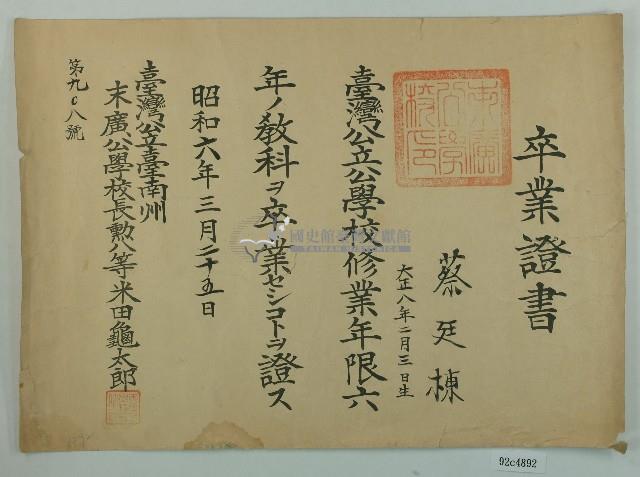 卒業證書
蔡廷棟
大正八年二月三日生
末廣公學校印
臺灣公立公學校修業年限六
年ノ教科ヲ卒業セシコトヲ證ス
昭和六年三月二十五日
臺灣公立臺南州
末廣公學校長勲八等米田龜太郎
第九〇八號
國史館臺灣文獻館
TAIWAN HISTORICA
92c4892